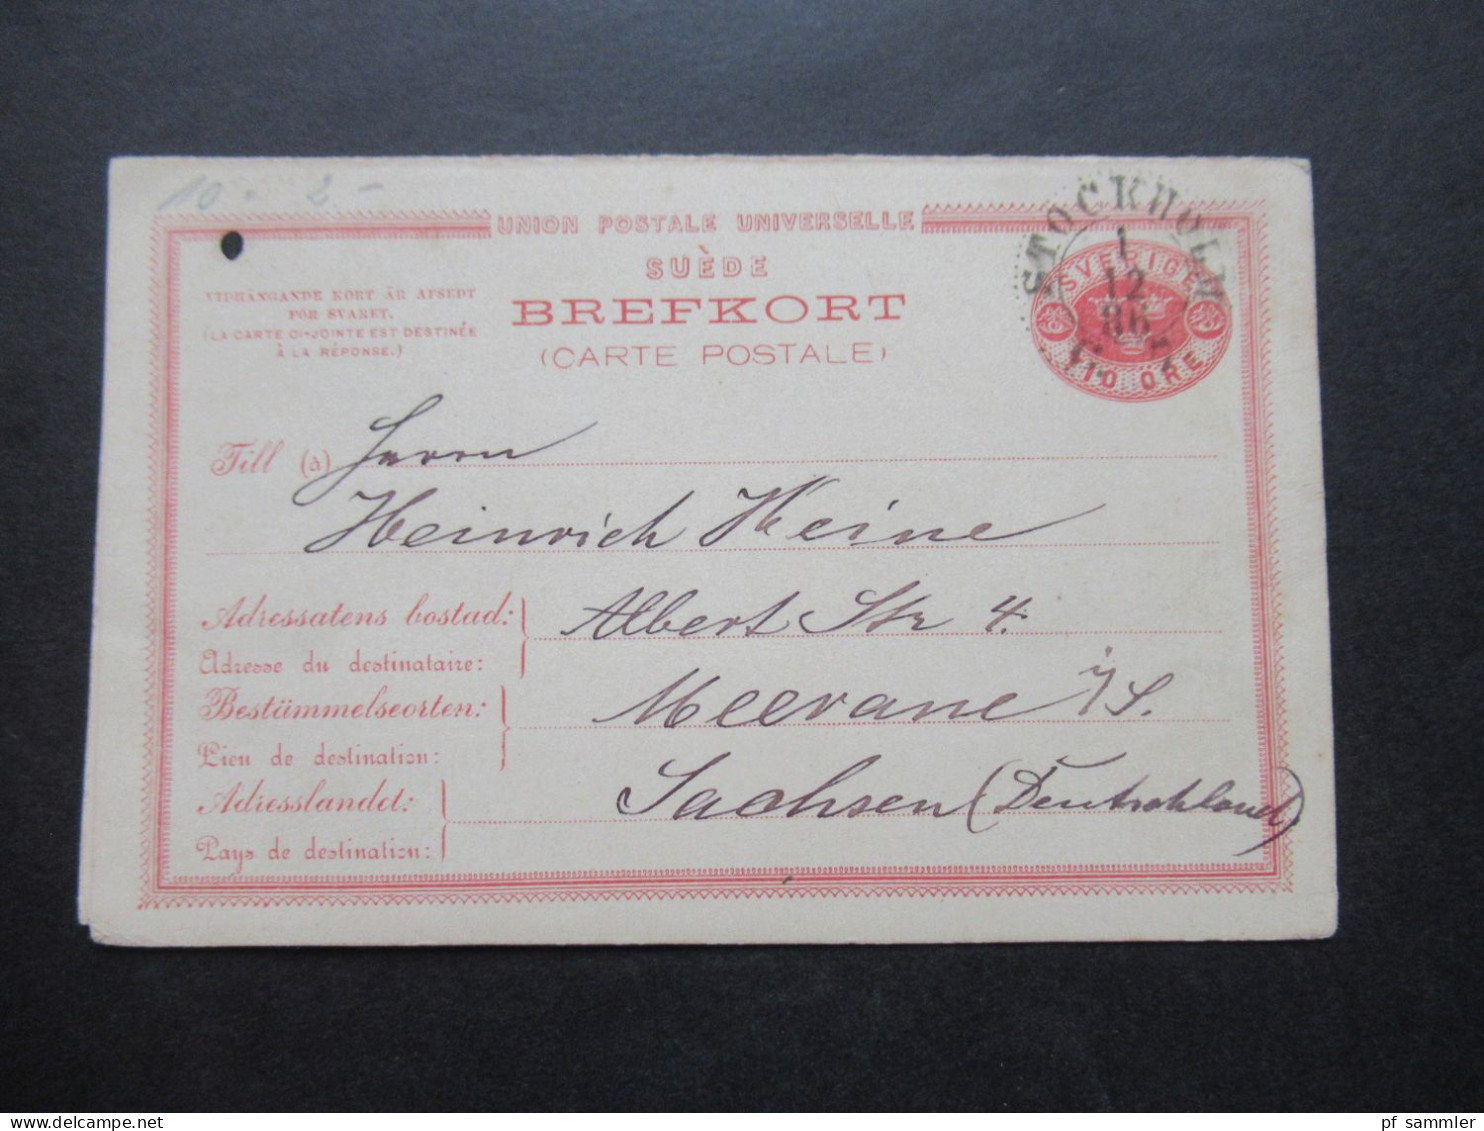 10 - 2 -
UNION POSTALE UNIVERSELLE
SUÈDE
BREFKORT
(CARTE POSTALE)
VIDHÄNGANDE KORT ÄR AFSEDT
FÖR SVARET.
(LA CARTE CI-JOINTE EST DESTINÉE
À LA RÉPONSE.)
STOCKHOLM
1
12
86
SVERIGE
TIO ÖRE
Till (à) Herrn
Heinrich Heine
Adressatens bostad: Albert Str 4.
Adresse du destinataire:
Bestämmelseorten: Meerane i/S.
Lieu de destination:
Adresslandet: Sachsen (Deutschland)
Pays de destination:
pf sammler
delcampe.net